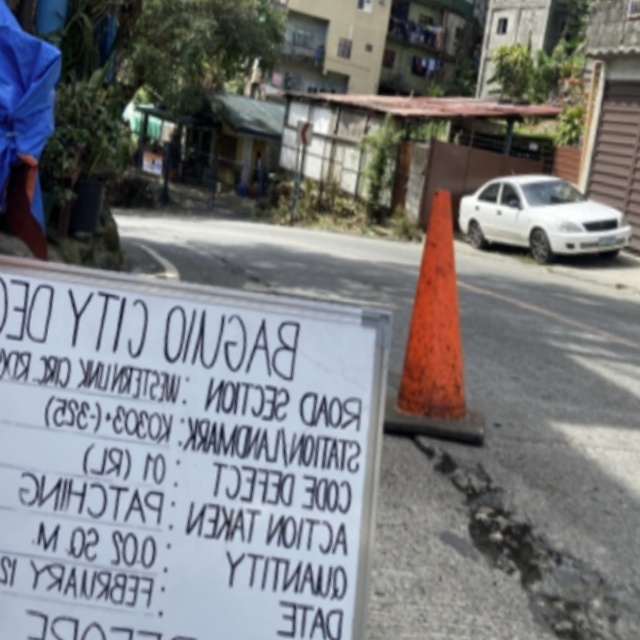 BAGUIO CITY DEO
ROAD SECTION : WESTERN LINK CIRC. RD
STATION/LANDMARK: K0303+(-325)
CODE DEFECT : 01 (RL)
ACTION TAKEN : PATCHING
QUANTITY : 0.02 SQ. M.
DATE : FEBRUARY 12
BEFORE